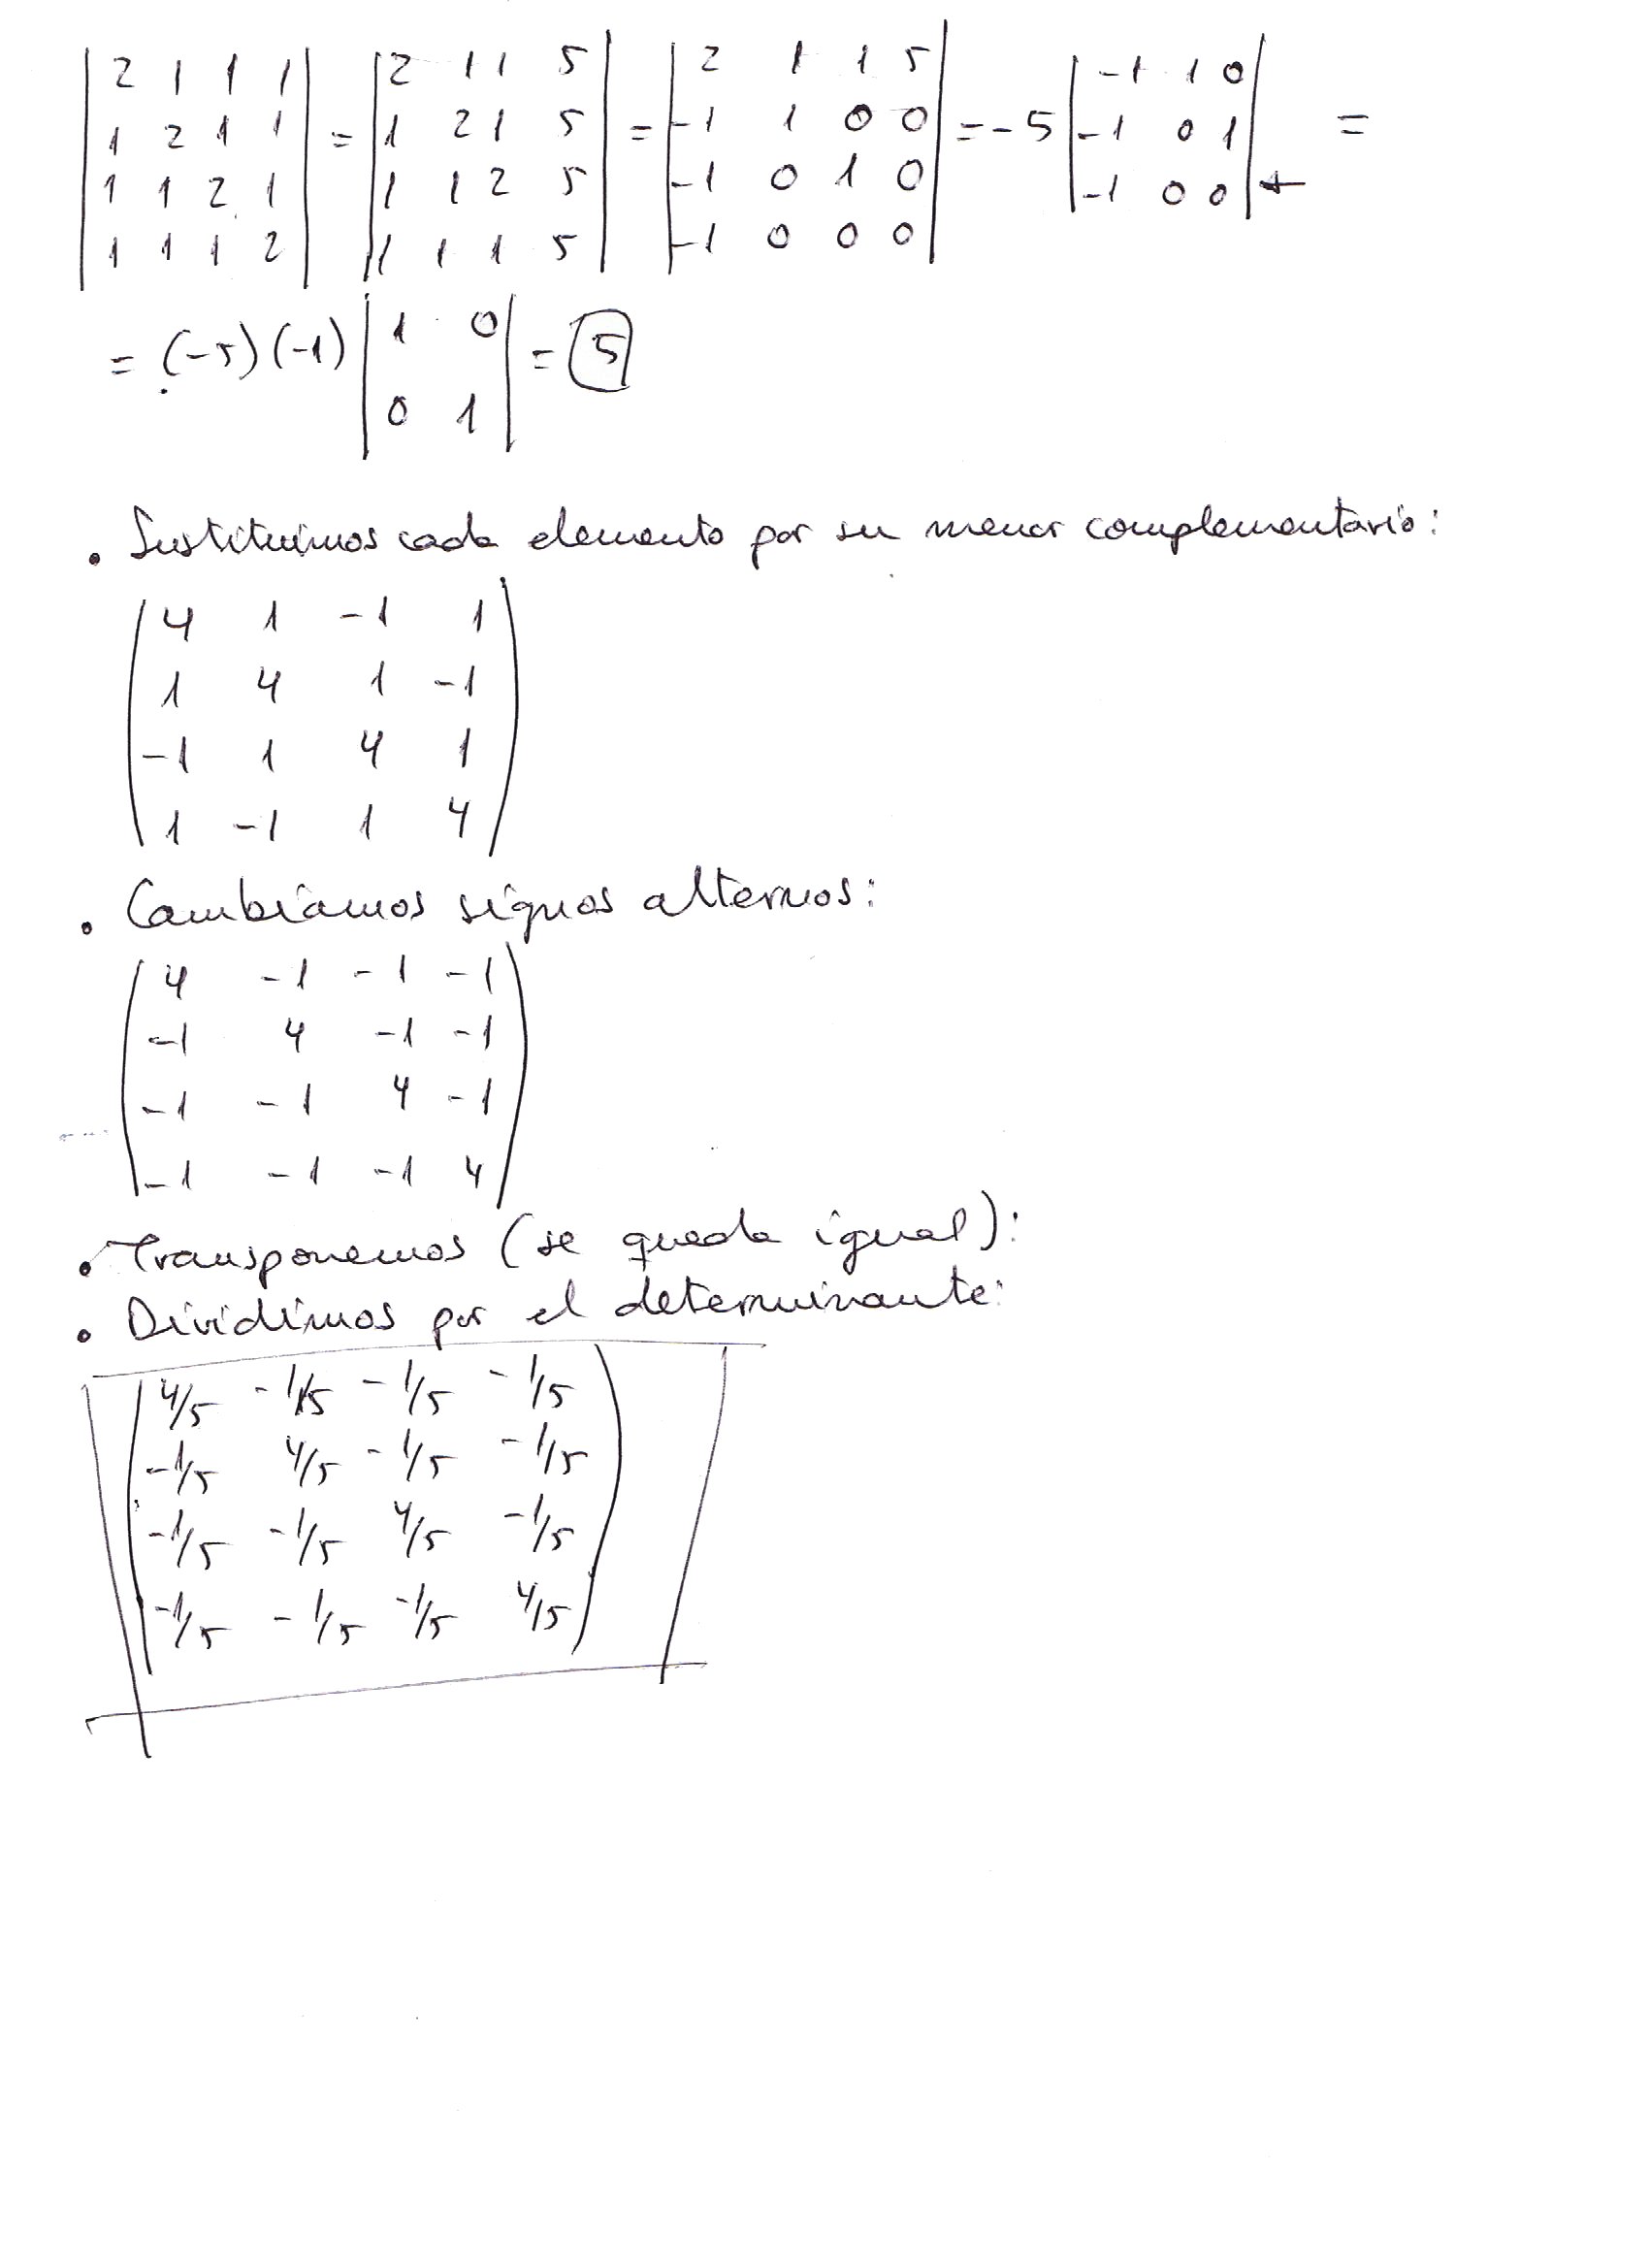 | 2 1 1 1 | = | 2 1 1 5 | = | 2 1 1 5 | = -5 | -1 1 0 | =
| 1 2 1 1 | | 1 2 1 5 | | -1 1 0 0 | | -1 0 1 |
| 1 1 2 1 | | 1 1 2 5 | | -1 0 1 0 | | -1 0 0 | ←
| 1 1 1 2 | | 1 1 1 5 | | -1 0 0 0 |
= (-5)(-1) | 1 0 | = 5
| 0 1 |
• Sustituimos cada elemento por su menor complementario:
( 4 1 -1 1 )
( 1 4 1 -1 )
( -1 1 4 1 )
( 1 -1 1 4 )
• Cambiamos signos alternos:
( 4 -1 -1 -1 )
( -1 4 -1 -1 )
( -1 -1 4 -1 )
( -1 -1 -1 4 )
• Transponemos (se queda igual):
• Dividimos por el determinante:
( 4/5 -1/5 -1/5 -1/5 )
( -1/5 4/5 -1/5 -1/5 )
( -1/5 -1/5 4/5 -1/5 )
( -1/5 -1/5 -1/5 4/5 )